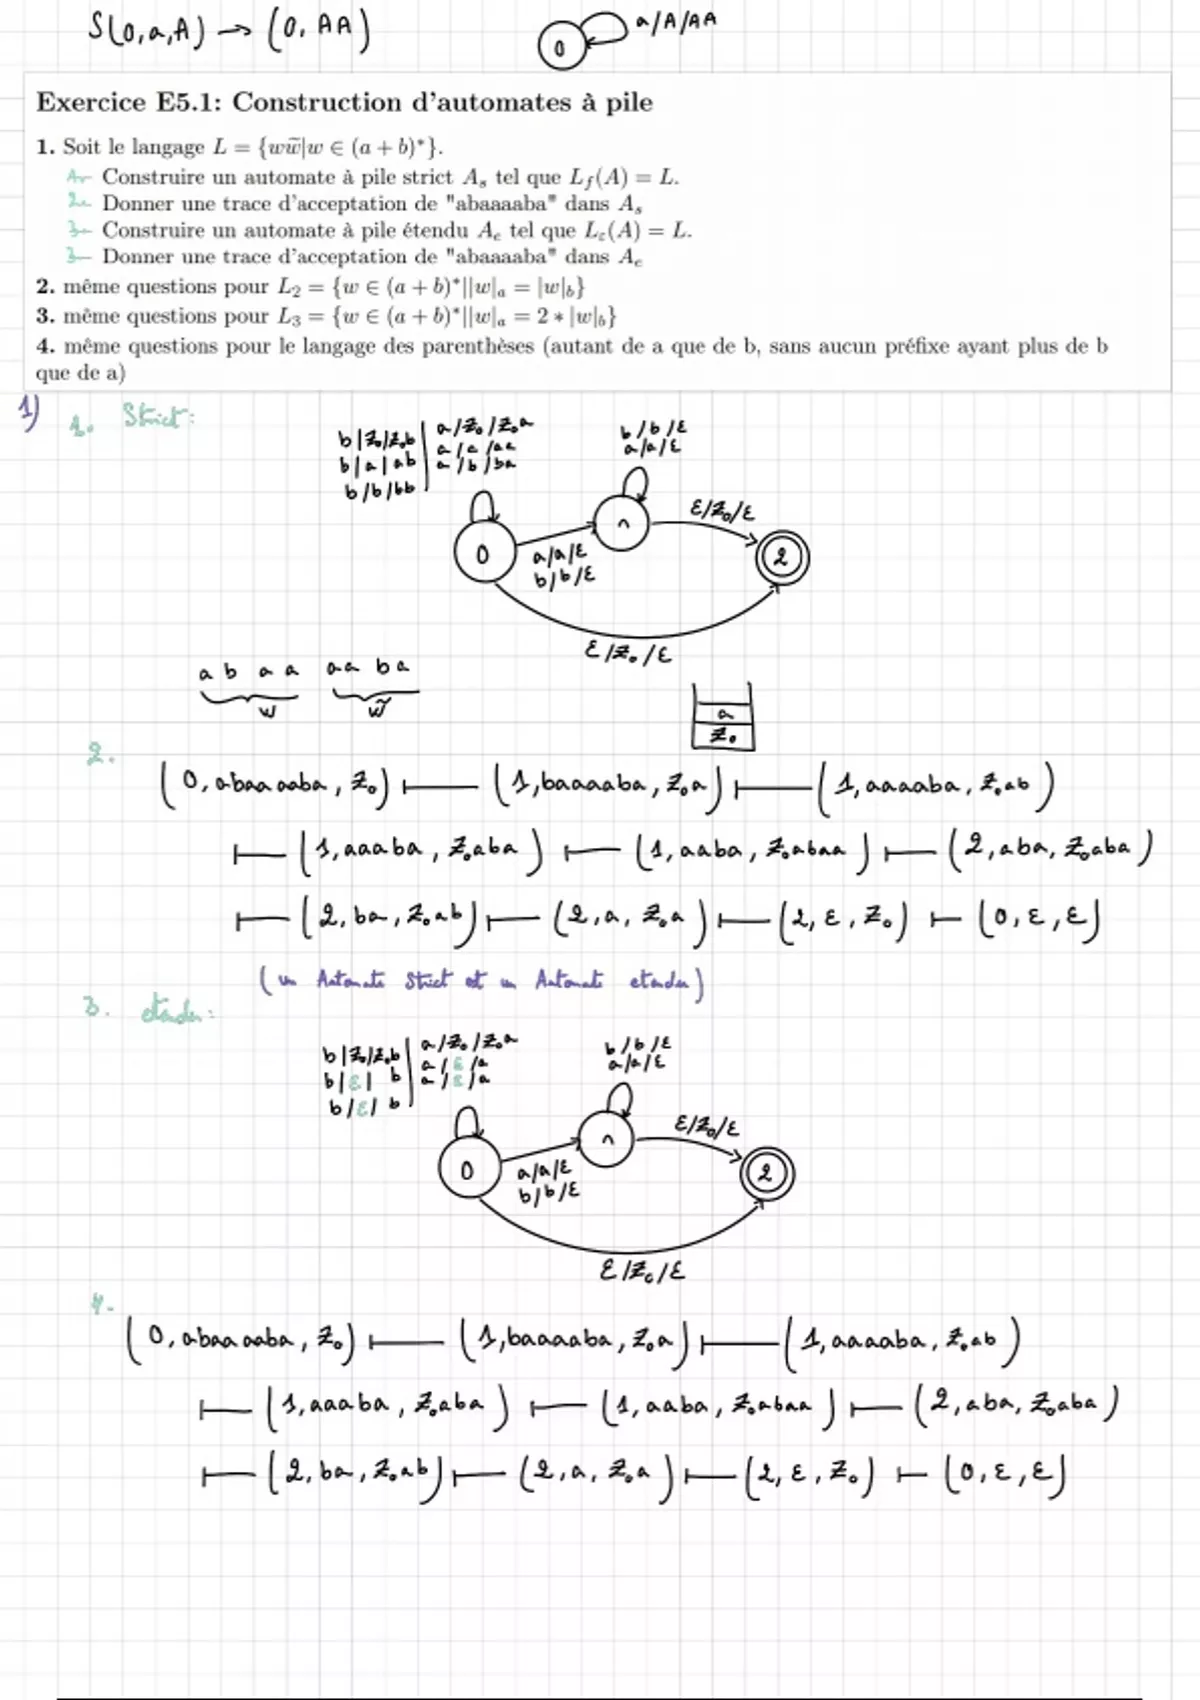 S(0,a,A) → (0, AA)
0 a/A/AA
Exercice E5.1: Construction d'automates à pile
1. Soit le langage L = {ww̃|w ∈ (a + b)*}.
1- Construire un automate à pile strict Aₛ tel que L_f(A) = L.
2- Donner une trace d'acceptation de "abaaaaba" dans Aₛ
3- Construire un automate à pile étendu Aₑ tel que L_ε(A) = L.
3- Donner une trace d'acceptation de "abaaaaba" dans Aₑ
2. même questions pour L₂ = {w ∈ (a + b)*||w|ₐ = |w|_b}
3. même questions pour L₃ = {w ∈ (a + b)*||w|ₐ = 2 * |w|_b}
4. même questions pour le langage des parenthèses (autant de a que de b, sans aucun préfixe ayant plus de b
que de a)
1) 1. Strict:
b|Z₀/Z₀b | a/Z₀/Z₀a b/b/ε
b|a|ab | a/a/aa a/a/ε
b/b/bb | a/b/ba
ε/Z₀/ε
0 1 2
a/a/ε
b/b/ε
ε/Z₀/ε
a b a a a a b a
w w̃
a
Z₀
2.
(0, abaaaaba, Z₀) ⊢ (1, baaaaba, Z₀a) ⊢ (1, aaaaba, Z₀ab)
⊢ (1, aaaba, Z₀aba) ⊢ (1, aaba, Z₀abaa) ⊢ (2, aba, Z₀aba)
⊢ (2, ba, Z₀ab) ⊢ (2, a, Z₀a) ⊢ (2, ε, Z₀) ⊢ (0, ε, ε)
(un Automate Strict et un Automate etendu)
3. etendu:
b|Z₀/Z₀b | a/Z₀/Z₀a b/b/ε
b|ε| b | a/ε/a a/a/ε
b/ε/ b | a/ε/a
ε/Z₀/ε
0 1 2
a/a/ε
b/b/ε
ε/Z₀/ε
4.
(0, abaaaaba, Z₀) ⊢ (1, baaaaba, Z₀a) ⊢ (1, aaaaba, Z₀ab)
⊢ (1, aaaba, Z₀aba) ⊢ (1, aaba, Z₀abaa) ⊢ (2, aba, Z₀aba)
⊢ (2, ba, Z₀ab) ⊢ (2, a, Z₀a) ⊢ (2, ε, Z₀) ⊢ (0, ε, ε)